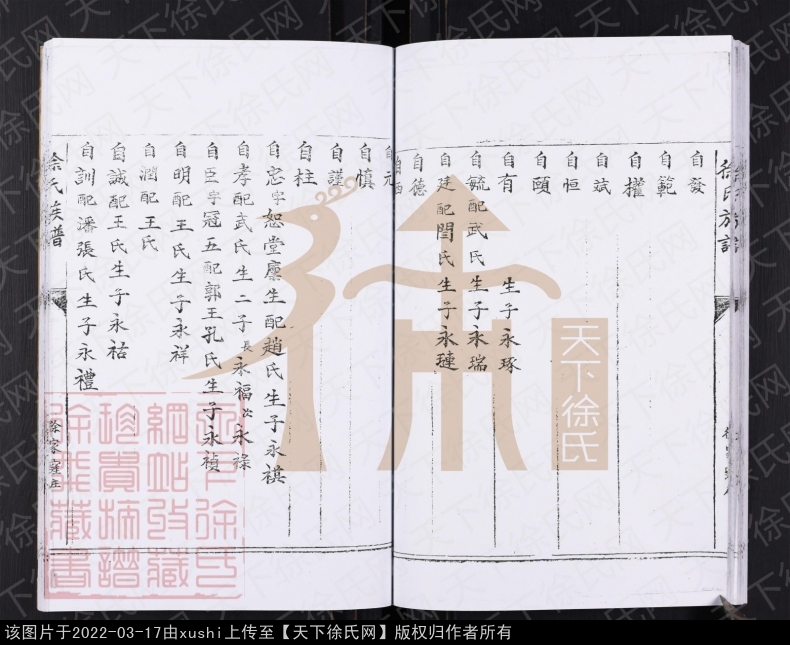 徐氏族譜
自發
自範
自權
自斌
自恒
自頤
自有 生子永琢
自毓配武氏生子永瑞
自建配閆氏生子永璉
自德
自元
自慎
自謹
自柱
自忠字恕堂廩生配趙氏生子永祺
自孝配武氏生二子長永福次永祿
自臣字冠五配郭王孔氏生子永禎
自明配王氏生子永祥
自潤配王氏
自誠配王氏生子永祜
自訓配潘張氏生子永禮
徐氏族譜
徐家窪庄
天下徐氏
天下徐氏网
该图片于2022-03-17由xushi上传至【天下徐氏网】版权归作者所有